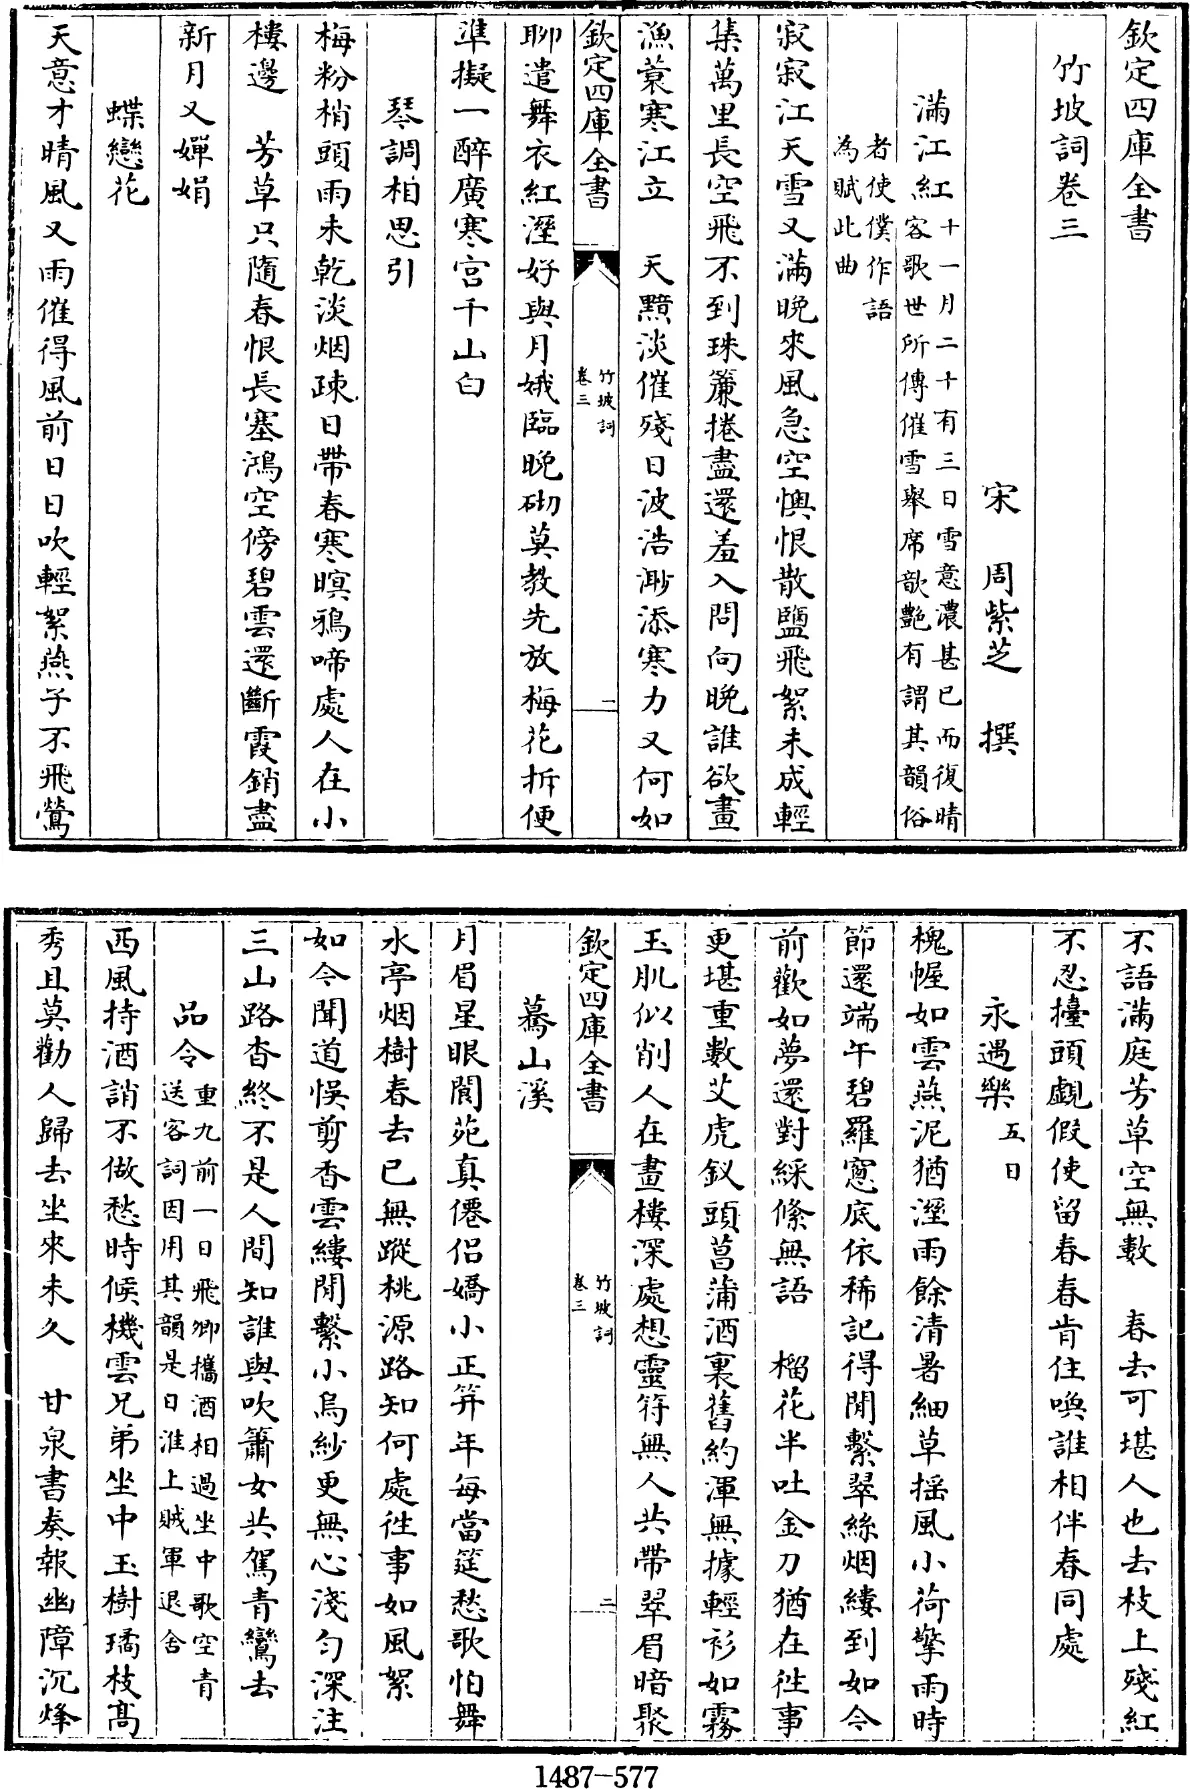 欽定四庫全書
竹坡詞卷三
宋 周紫芝 撰
滿江紅 十一月二十有三日雪意濃甚已而復晴
客歌世所傳催雪舉席歆艷有謂其韻俗
者使僕作語
為賦此曲
寂寂江天雪又滿晩來風急空懊恨散鹽飛絮未成輕
集萬里長空飛不到珠簾捲盡還羞入問向晩誰欲畫
漁蓑寒江立 天黯淡催殘日波浩渺添寒力又何如
欽定四庫全書
竹坡詞
卷三
一
聊遣舞衣紅溼好與月娥臨晩砌莫教先放梅花拆便
準擬一醉廣寒宮千山白
琴調相思引
梅粉梢頭雨未乾淡烟疎日帶春寒暝鴉啼處人在小
樓邊 芳草只隨春恨長塞鴻空傍碧雲還斷霞銷盡
新月又嬋娟
蝶戀花
天意才晴風又雨催得風前日日吹輕絮燕子不飛鶯
不語滿庭芳草空無數 春去可堪人也去枝上殘紅
不忍擡頭覷假使留春春肯住喚誰相伴春同處
永遇樂 五日
槐幄如雲燕泥猶溼雨餘清暑細草揺風小荷擎雨時
節還端午碧羅窻底依稀記得閒繫翠絲烟縷到如今
前歡如夢還對綵絛無語 榴花半吐金刀猶在徃事
更堪重數艾虎釵頭菖蒲酒裏舊約渾無據輕衫如霧
玉肌似削人在畫樓深處想靈符無人共帶翠眉暗聚
欽定四庫全書
竹坡詞
卷三
二
驀山溪
月眉星眼閬苑真僊侣嬌小正笄年每當筵愁歌怕舞
水亭烟樹春去已無蹤桃源路知何處徃事如風絮
如今聞道悞剪香雲縷閒繫小烏紗更無心淺勻深注
三山路杳終不是人間知誰與吹簫女共駕青鸞去
品令 重九前一日飛卿攜酒相過坐中歌空青
送客詞因用其韻是日淮上賊軍退舍
西風持酒誚不做愁時候機雲兄弟坐中玉樹璚枝髙
秀且莫勸人歸去坐來未久 甘泉書奏報幽障沉烽
1487-577